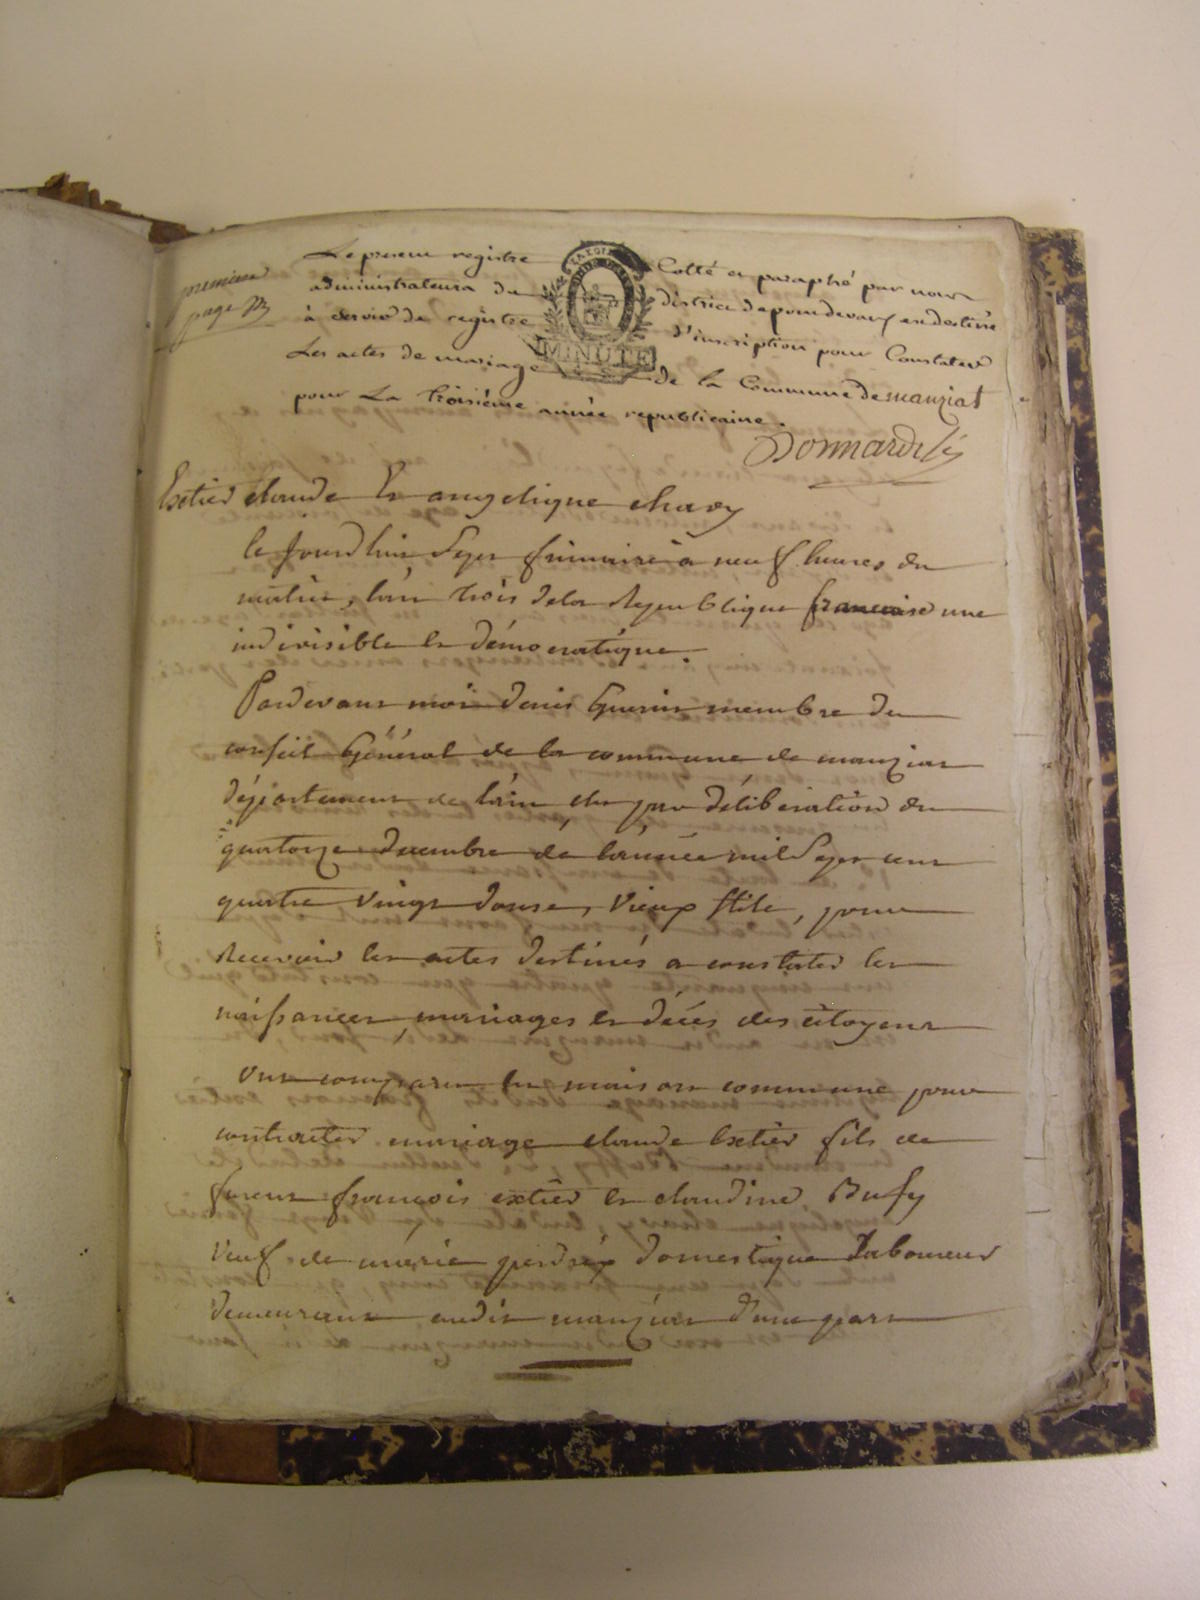 premiere
page
Le present registre Cotté et paraphé par nous
administrateurs du district de pondevaux est destiné
à servir de registre d'inscription pour Constater
MINUTE
Les actes de mariage de la Commune de manziat
pour La troisiéme année republicaine.
Extier claude Et angelique chavy
le Jourdhui Sept frimaire a neuf heures du
matin, l'an trois de la Republique francaise une
indivisible et démocratique.
Pardevant moi denis Guerin membre du
conseil Général de la commune de manziat
département de l'ain élu par délibération du
quatorze decembre de l'année mil Sept cent
quatre vingt douze, vieux stile, pour
Recevoir les actes destinés a constater les
naissances, mariages et décés des citoyens
sont comparu en maison commune pour
contracter mariage claude Extier fils de
furent françois extier et claudine Bufy
veuf de marie perdrix domestique Laboureur
demeurant audit manziat d'une part